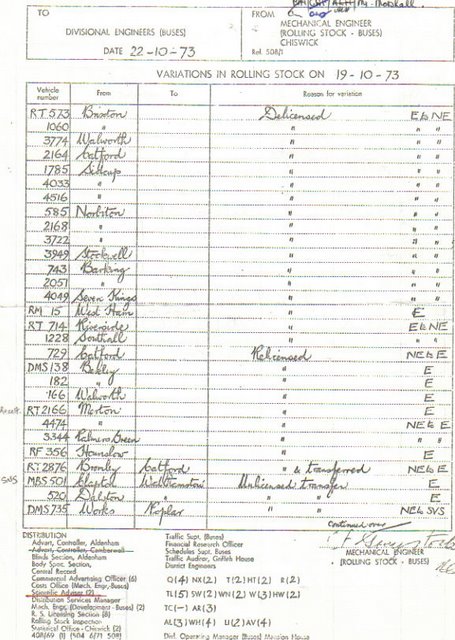 TO
DIVISIONAL ENGINEERS (BUSES)
DATE 22-10-73
FROM
MECHANICAL ENGINEER
(ROLLING STOCK - BUSES)
CHISWICK
Ref. 508/1
VARIATIONS IN ROLLING STOCK ON 19-10-73
Vehicle number From To Reason for variation
RT 573 Brixton Delicensed E & NE
1060 " " " "
3774 Walworth " " "
2164 Catford " " "
1785 Sidcup " " "
4033 " " " "
4516 " " " "
585 Norbiton " " "
2168 " " " "
3722 " " " "
3949 Stockwell " " "
743 Barking " " "
2051 " " " "
4049 Seven Kings " " "
RM 15 West Ham " E
RT 714 Riverside " E & NE
1228 Southall " " "
729 Catford Relicensed NE & E
DMS 138 Bexley " E
182 " " E
166 Walworth " E
RT 2166 Merton " E
4474 " " NE & E
3344 Palmers Green " " "
RF 356 Hounslow " E
RT 2876 Bromley Catford " & transferred NE & E
SNS MBS 501 Clapton Walthamstow Unlicensed transfer E
520 Dalston " " " E
DMS 735 Works Poplar NE & SYS
Continued over
DISTRIBUTION
Advert, Controller, Aldenham
Advert, Controller, Camberwell
Blinds Section, Aldenham
Body Spec. Section,
Central Record
Commercial Advertising Officer (6)
Costs Office (Mech. Engr. Buses)
Scientific Adviser (2)
Distribution Services Manager
Mech. Engr. (Development - Buses) (2)
R. S. Licensing Section (8)
Rolling Stock Inspection
Statistical Office - Chiswick (2)
Traffic Supt. (Buses)
Financial Research Officer
Schedules Supt. Buses
Traffic Auditor, Griffith House
District Engineers
Q (4) NX (2) T (2) HT (2) R (2)
TL (5) SW (2) WN (2) W (3) HW (2)
TC (-) AR (3)
AL (3) WH (4) U (2) AV (4)
Divl. Operating Manager (Buses) Mansion House
MECHANICAL ENGINEER
(ROLLING STOCK - BUSES)